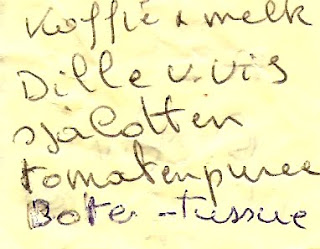 Koffie & melk
Dille v. vis
sjalotten
tomatenpuree
Boter - tissue